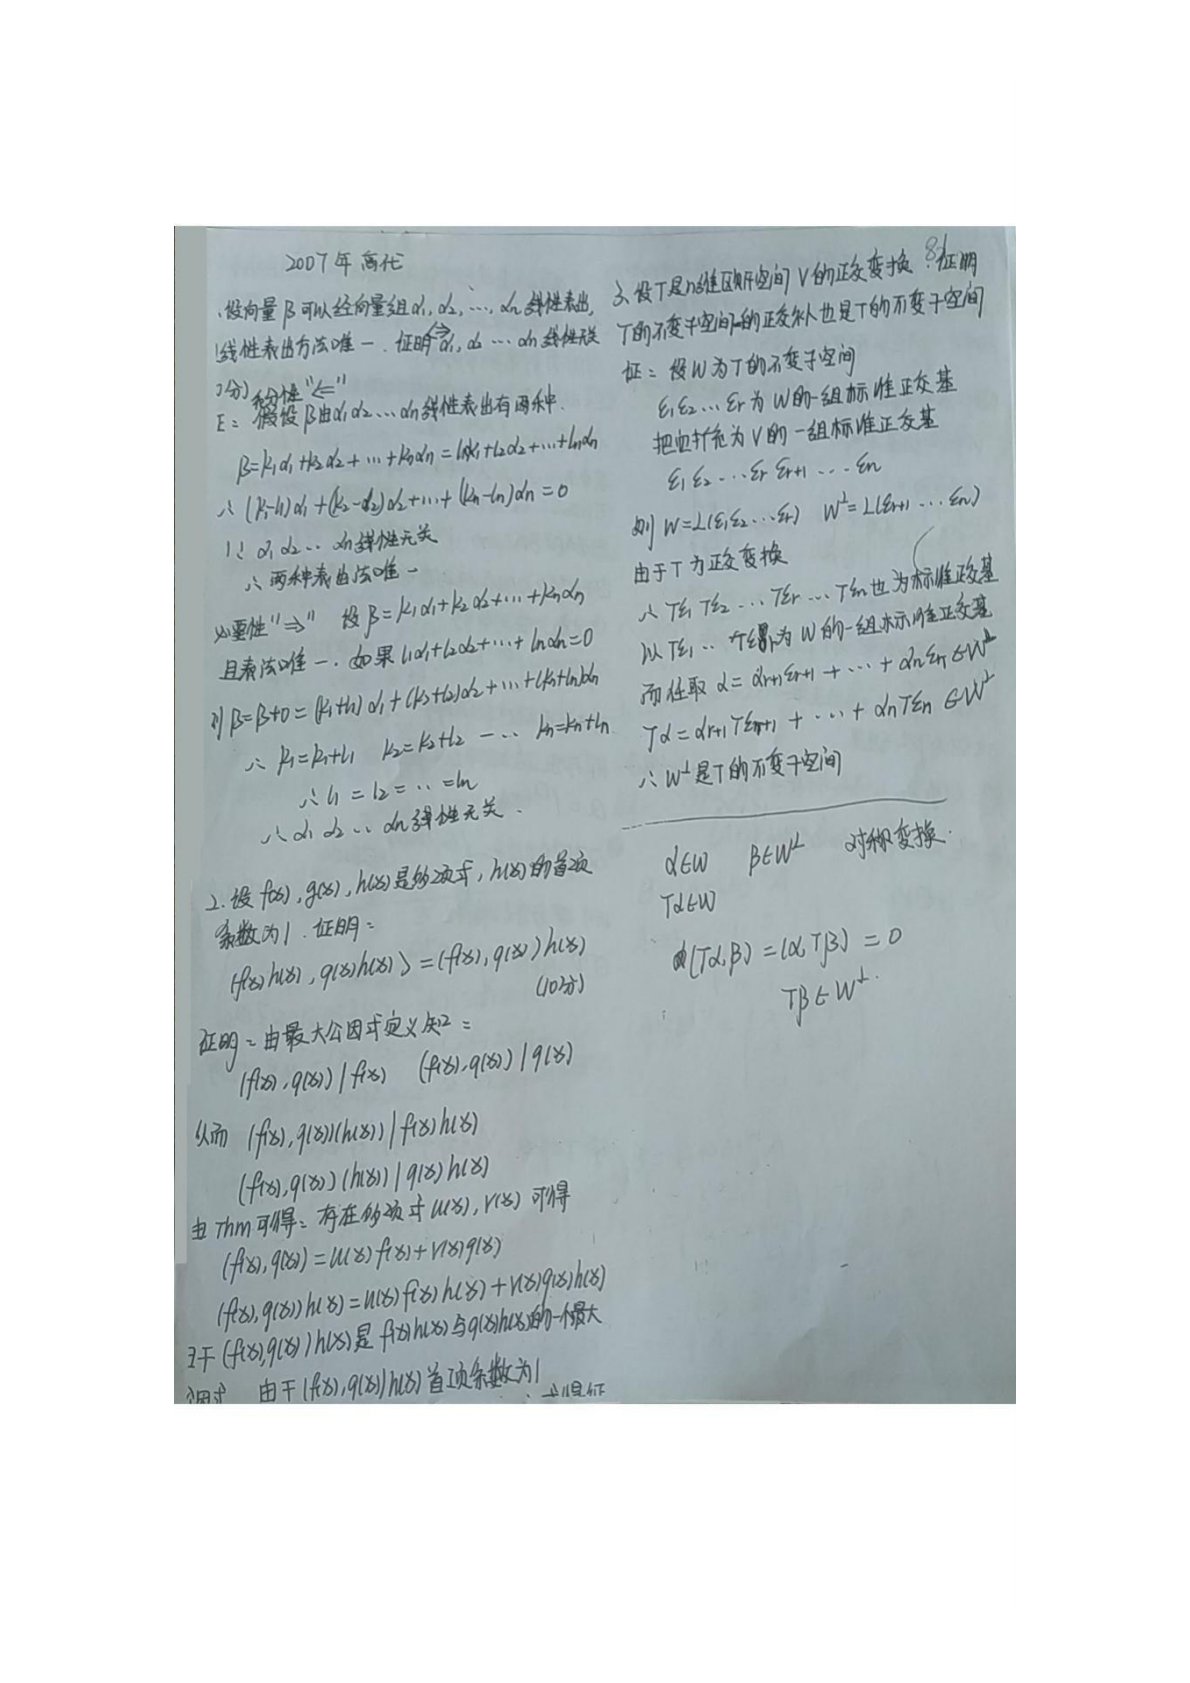 2007年高代
.设向量β可以经向量组α1,α2,…,αn线性表出,
线性表出方法唯一.证明⇔α1,α2…αn线性无关
分) 充分性"⇐"
假设β由α1α2…αn线性表出有两种.
β=k1α1+k2α2+…+knαn=l1α1+l2α2+…+lnαn
∴(k1-l1)α1+(k2-α2)α2+…+(kn-ln)αn=0
∵α1α2‥αn线性无关
∴两种表出法唯一
必要性"⇒" 设β=k1α1+k2α2+…+knαn
且表法唯一.如果l1α1+l2α2+…+lnαn=0
则β=β+0=(k1+l1)α1+(k2+l2)α2+…+(kn+ln)αn
∴k1=k1+l1 k2=k2+l2 … kn=kn+ln
∴l1=l2=‥=ln
∴α1α2‥αn线性无关.
2.设f(x),g(x),h(x)是多项式,h(x)的首项
系数为1.证明:
(f(x)h(x),g(x)h(x))=(f(x),g(x))h(x)
(10分)
证明:由最大公因式定义知:
(f(x),g(x))|f(x) (f(x),g(x))|g(x)
从而 (f(x),g(x))(h(x))|f(x)h(x)
(f(x),g(x))(h(x))|g(x)h(x)
由Thm可得:存在多项式u(x),v(x)可得
(f(x),g(x))=u(x)f(x)+v(x)g(x)
(f(x),g(x))h(x)=u(x)f(x)h(x)+v(x)g(x)h(x)
于(f(x),g(x))h(x)是f(x)h(x)与g(x)h(x)的一个最大
因式 由于(f(x),g(x))h(x)首项系数为1
式得证
3.设T是n维欧氏空间V的正交变换.证明
T的不变子空间的正交补也是T的不变子空间
证:设W为T的不变子空间
ε1ε2…εr为W的一组标准正交基
把它扩充为V的一组标准正交基
ε1ε2…εrεr+1…εn
则W=L(ε1ε2…εr) W⊥=L(εr+1…εn)
由于T为正交变换
∴Tε1Tε2…Tεr…Tεn也为标准正交基
以Tε1‥Tεr为W的一组标准正交基
而任取α=αr+1εr+1+…+αnεn∈W⊥
Tα=αr+1Tεr+1+…+αnTεn∈W⊥
∴W⊥是T的不变子空间
α∈W β∈W⊥ 对称变换.
Tα∈W
(Tα,β)=(α,Tβ)=0
Tβ∈W⊥.